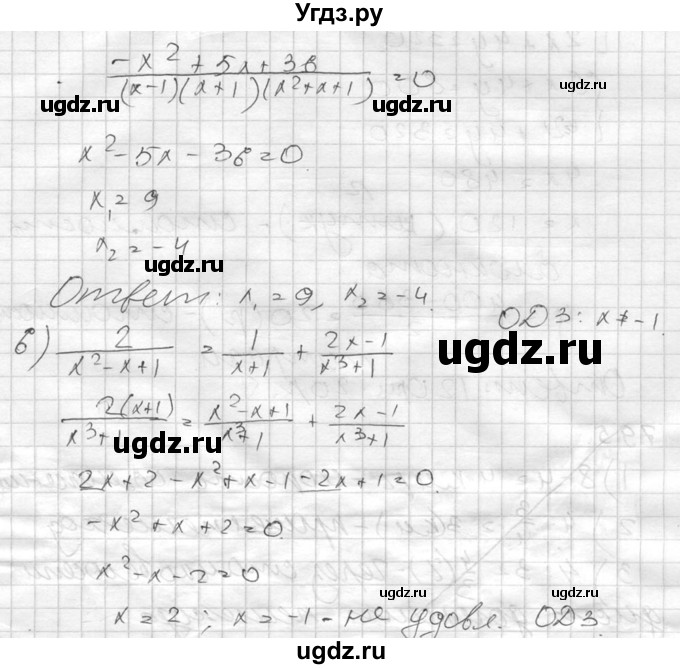 Угдз.ру
(-x² + 5x + 36)/((x-1)(x+1)(x²+x+1)) = 0
ugdz.ru ugdz.ru
x² - 5x - 36 = 0
ugdz.ru
x₁ = 9
x₂ = -4
ugdz.ru
Ответ: x₁ = 9, x₂ = -4.
ОДЗ: x ≠ -1.
б) 2/(x² - x + 1) = 1/(x+1) + (2x-1)/(x³+1)
ugdz.ru
2(x+1)/(x³+1) = (x²-x+1)/(x³+1) + (2x-1)/(x³+1)
ugdz.ru
2x + 2 - x² + x - 1 - 2x + 1 = 0.
ugdz.ru
-x² + x + 2 = 0.
ugdz.ru
x² - x - 2 = 0
ugdz.ru
x = 2; x = -1 - не удовл. ОДЗ.
ugdz.ru